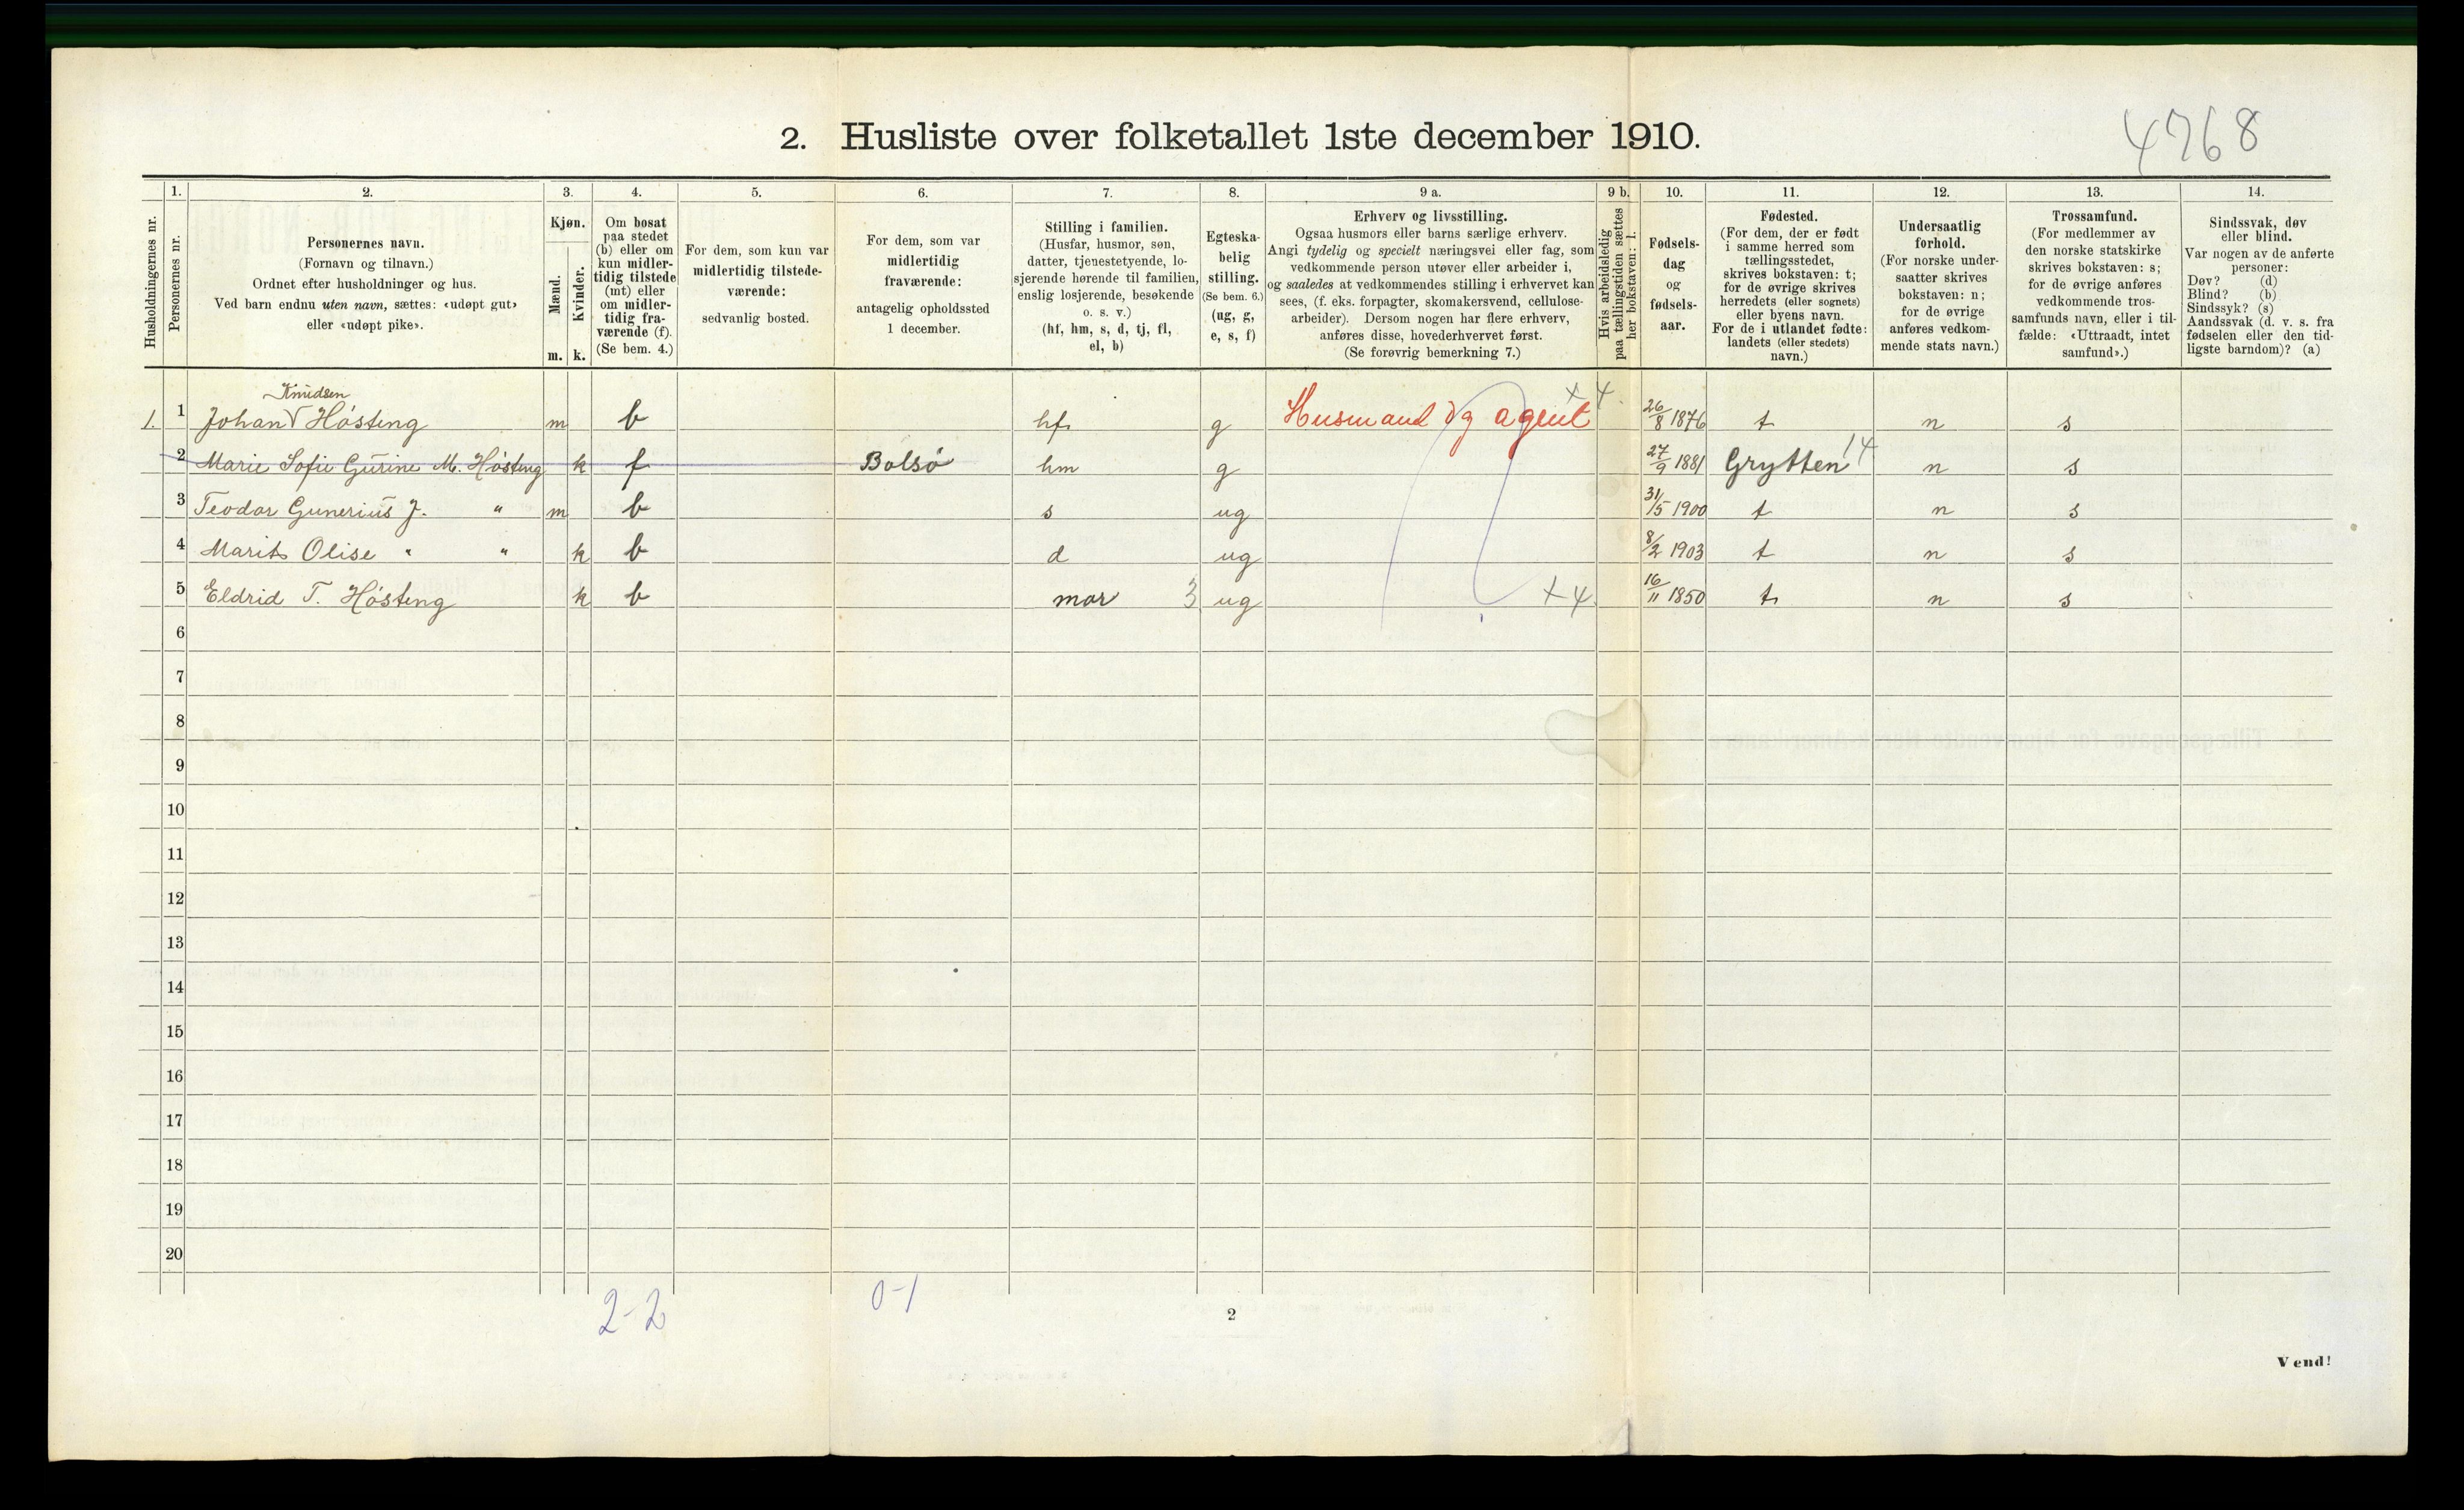 2. Husliste over folketallet 1ste december 1910.
4768
Husholdningernes nr.
1.
Personernes nr.
2.
Personernes navn.
(Fornavn og tilnavn.)
Ordnet efter husholdninger og hus.
Ved barn endnu uten navn, sættes: «udøpt gut»
eller «udøpt pike».
3.
Kjøn.
Mænd.
Kvinder.
m. k.
4.
Om bosat
paa stedet
(b) eller om
kun midler-
tidig tilstede
(mt) eller
om midler-
tidig fra-
værende (f).
(Se bem. 4.)
5.
For dem, som kun var
midlertidig tilstede-
værende:
sedvanlig bosted.
6.
For dem, som var
midlertidig
fraværende:
antagelig opholdssted
1 december.
7.
Stilling i familien.
(Husfar, husmor, søn,
datter, tjenestetyende, lo-
sjerende hørende til familien,
enslig losjerende, besøkende
o. s. v.)
(hf, hm, s, d, tj, fl,
el, b)
8.
Egteska-
belig
stilling.
(Se bem. 6.)
(ug, g,
e, s, f)
9 a.
Erhverv og livsstilling.
Ogsaa husmors eller barns særlige erhverv.
Angi tydelig og specielt næringsvei eller fag, som
vedkommende person utøver eller arbeider i,
og saaledes at vedkommendes stilling i erhvervet kan
sees, (f. eks. forpagter, skomakersvend, cellulose-
arbeider). Dersom nogen har flere erhverv,
anføres disse, hovederhvervet først.
(Se forøvrig bemerkning 7.)
9 b.
Hvis arbeidsledig
paa tællingstiden sættes
her bokstaven: l.
10.
Fødsels-
dag
og
fødsels-
aar.
11.
Fødested.
(For dem, der er født
i samme herred som
tællingsstedet,
skrives bokstaven: t;
for de øvrige skrives
herredets (eller sognets)
eller byens navn.
For de i utlandet fødte:
landets (eller stedets)
navn.)
12.
Undersaatlig
forhold.
(For norske under-
saatter skrives
bokstaven: n;
for de øvrige
anføres vedkom-
mende stats navn.)
13.
Trossamfund.
(For medlemmer av
den norske statskirke
skrives bokstaven: s;
for de øvrige anføres
vedkommende tros-
samfunds navn, eller i til-
fælde: «Uttraadt, intet
samfund».)
14.
Sindssvak, døv
eller blind.
Var nogen av de anførte
personer:
Døv? (d)
Blind? (b)
Sindssyk? (s)
Aandssvak (d. v. s. fra
fødselen eller den tid-
ligste barndom)? (a)
Knudsen
1. 1 Johan V Høsteng m b hf g Husmand og agent x 4. 26/8 1876 t n s
2 Marie Sofie Gurine M. Høsteng k f Bolsø hm g 27/9 1881 Grytten 14 n s
3 Teodor Gunerius J. " m b s ug 31/5 1900 t n s
4 Marits Olise " " k b d ug 8/2 1903 t n s
5 Eldrid T. Høsteng k b mor 3 ug x 4 16/11 1850 t n s
6
7
8
9
10
11
12
13
14
15
16
17
18
19
20
2-2 0-1
2
Vend!